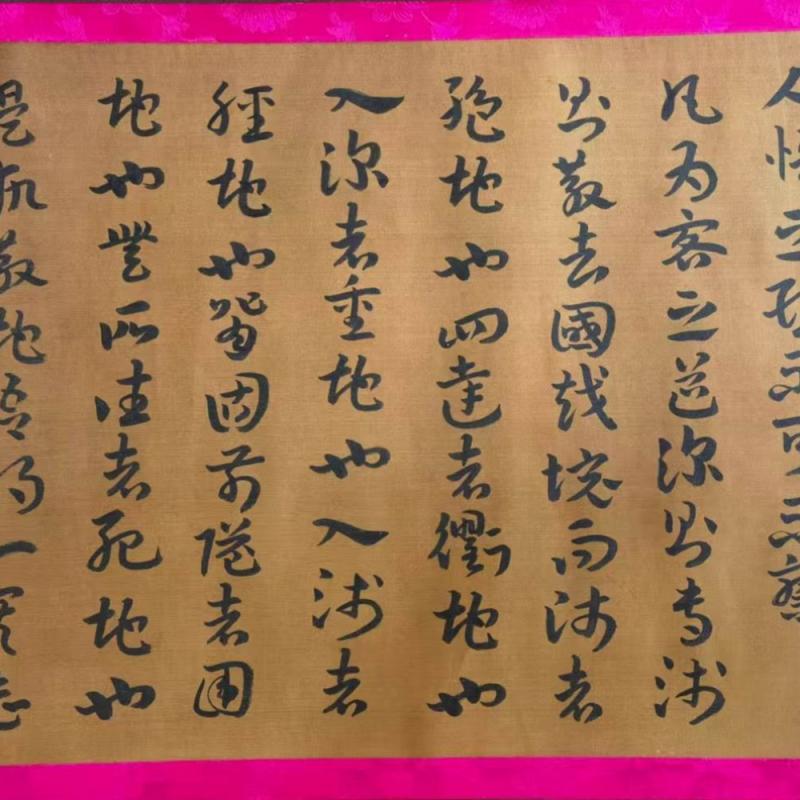 人情之理不可不察
凡为客之道深則專淺
則散去國越境而師者
絕地也四達者衢地也
入深者重地也入淺者
輕地也背固前隘者圍
地也無所往者死地也
是故散地吾將一其志